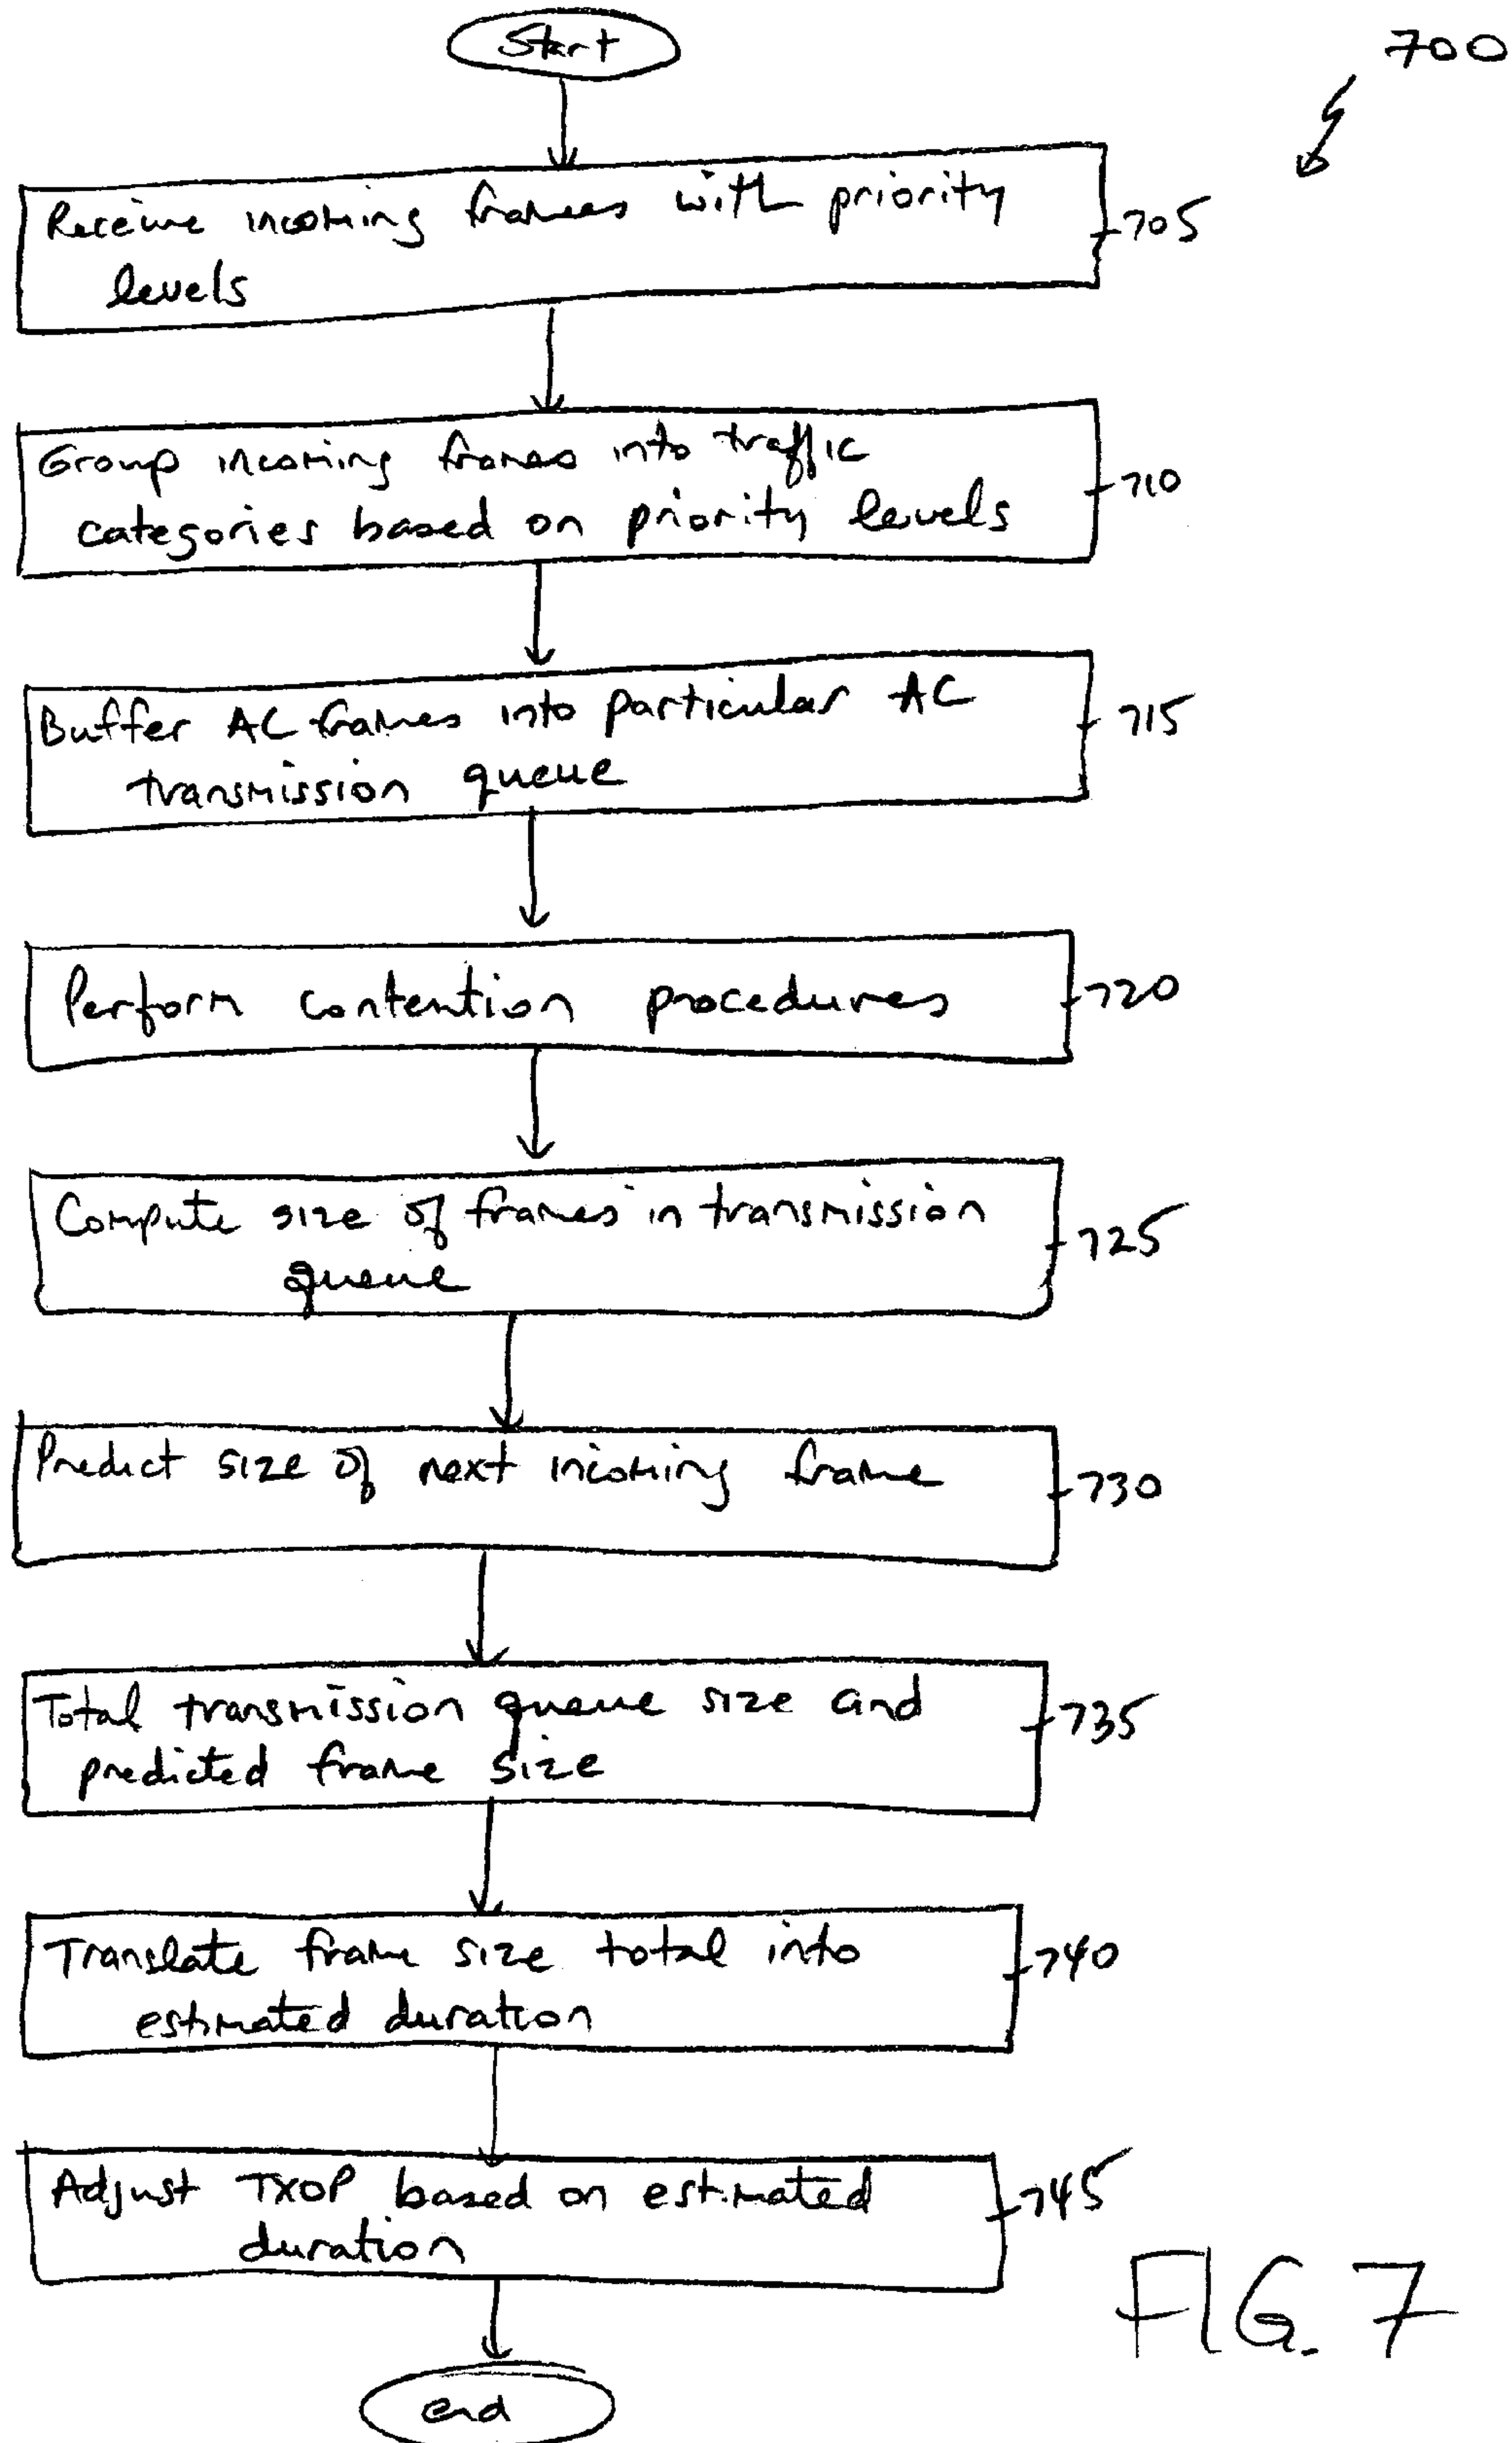 Start
700
Receive incoming frames with priority
levels
705
Group incoming frames into traffic
categories based on priority levels
710
Buffer AC frames into particular AC
transmission queue
715
Perform contention procedures
720
Compute size of frames in transmission
queue
725
Predict size of next incoming frame
730
Total transmission queue size and
predicted frame size
735
Translate frame size total into
estimated duration
740
Adjust TXOP based on estimated
duration
745
end
FIG. 7